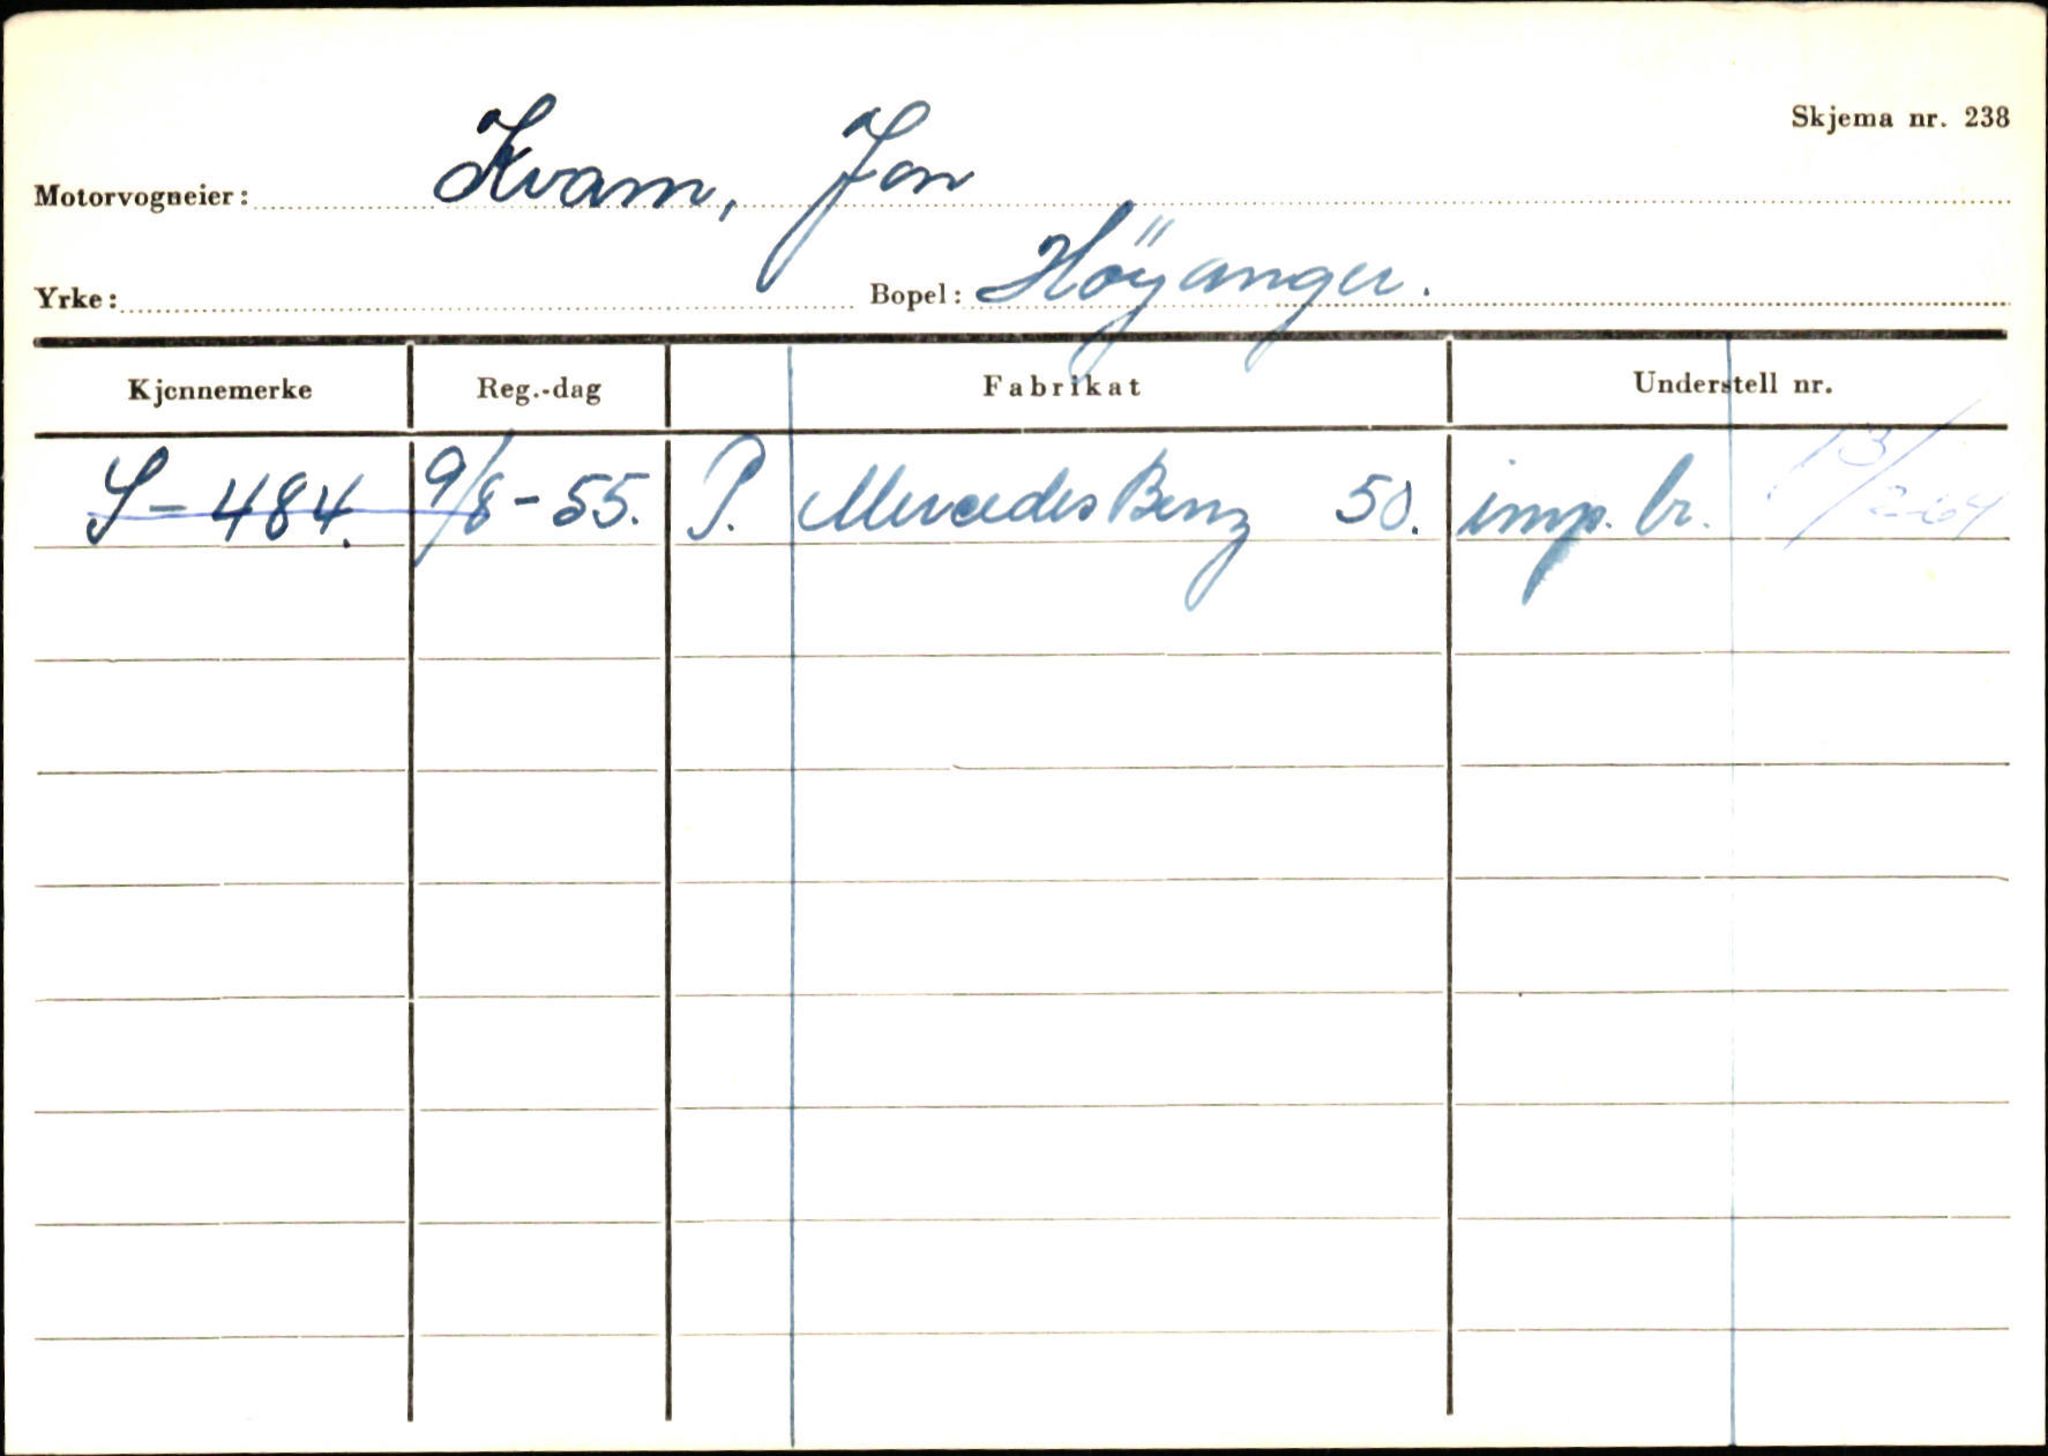 Skjema nr. 238
Motorvogneier: Kvam, Jon
Yrke: Bopel: Höyanger.
Kjennemerke Reg.-dag Fabrikat Understell nr.
S-484. 9/8-55. P. Mercedes Benz 50. imp. br. 13/2-64